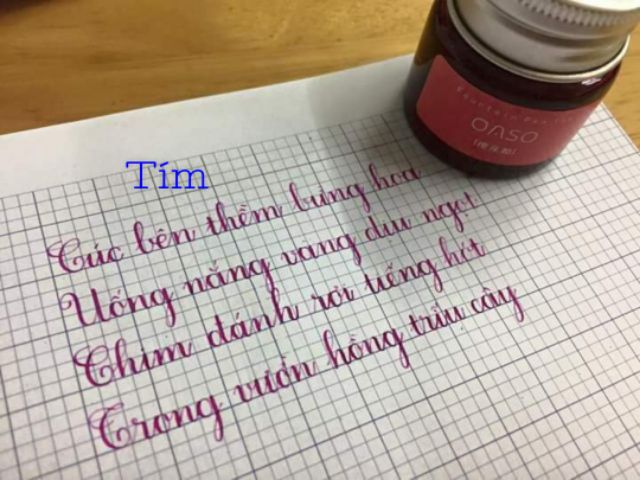 Fountain Pen Ink
OASO
Tím
Cúc bên thềm bừng hoa
Uống nắng vàng dịu ngọt
Chim đánh rơi tiếng hót
Trong vườn hồng trĩu cây